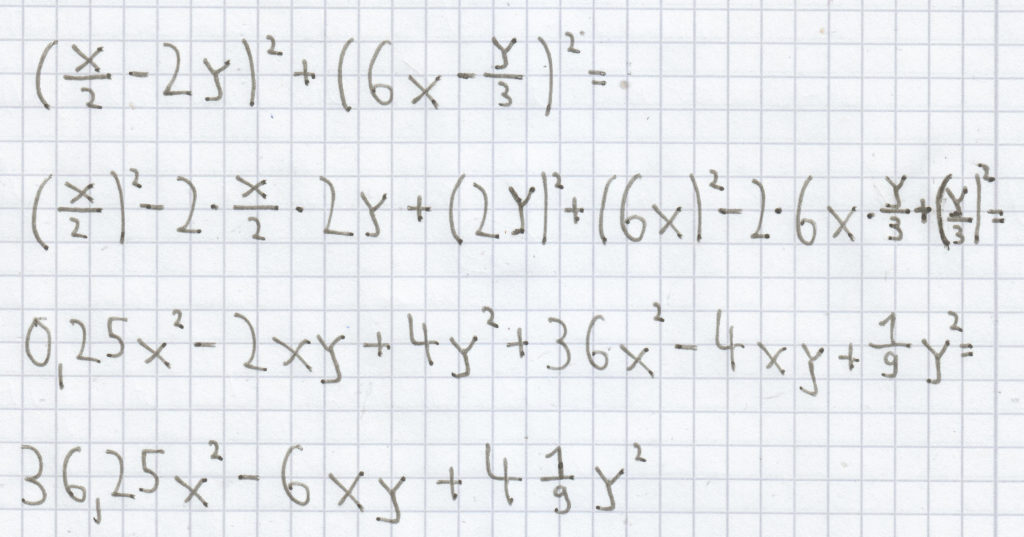 (x/2 - 2y)² + (6x - y/3)² =
(x/2)² - 2 · x/2 · 2y + (2y)² + (6x)² - 2 · 6x · y/3 + (y/3)² =
0,25x² - 2xy + 4y² + 36x² - 4xy + 1/9 y² =
36,25x² - 6xy + 4 1/9 y²